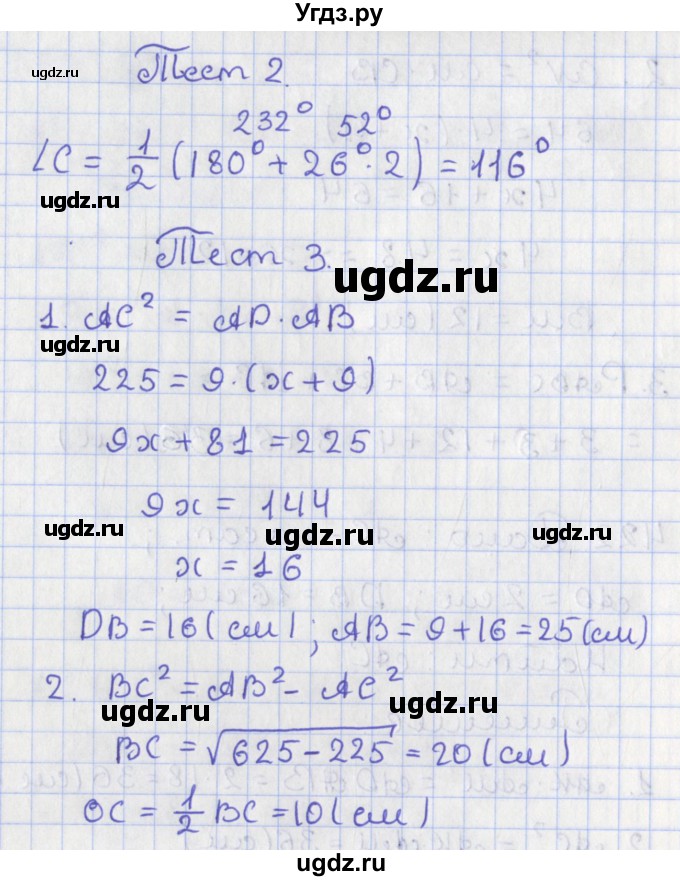 Угдз.ру
ugdz.ru
Тест 2.
232° 52°
∠C = 1/2 (180° + 26°·2) = 116°
ugdz.ru
Тест 3.
ugdz.ru
1. AC² = AD·AB
ugdz.ru
225 = 9·(x+9)
9x + 81 = 225
9x = 144
ugdz.ru ugdz.ru ugdz.ru
x = 16
DB = 16(см); AB = 9+16=25(см)
2. BC² = AB² - AC²
ugdz.ru ugdz.ru
BC = √625-225 = 20(см)
OC = 1/2 BC = 10(см)
ugdz.ru
ugdz.ru